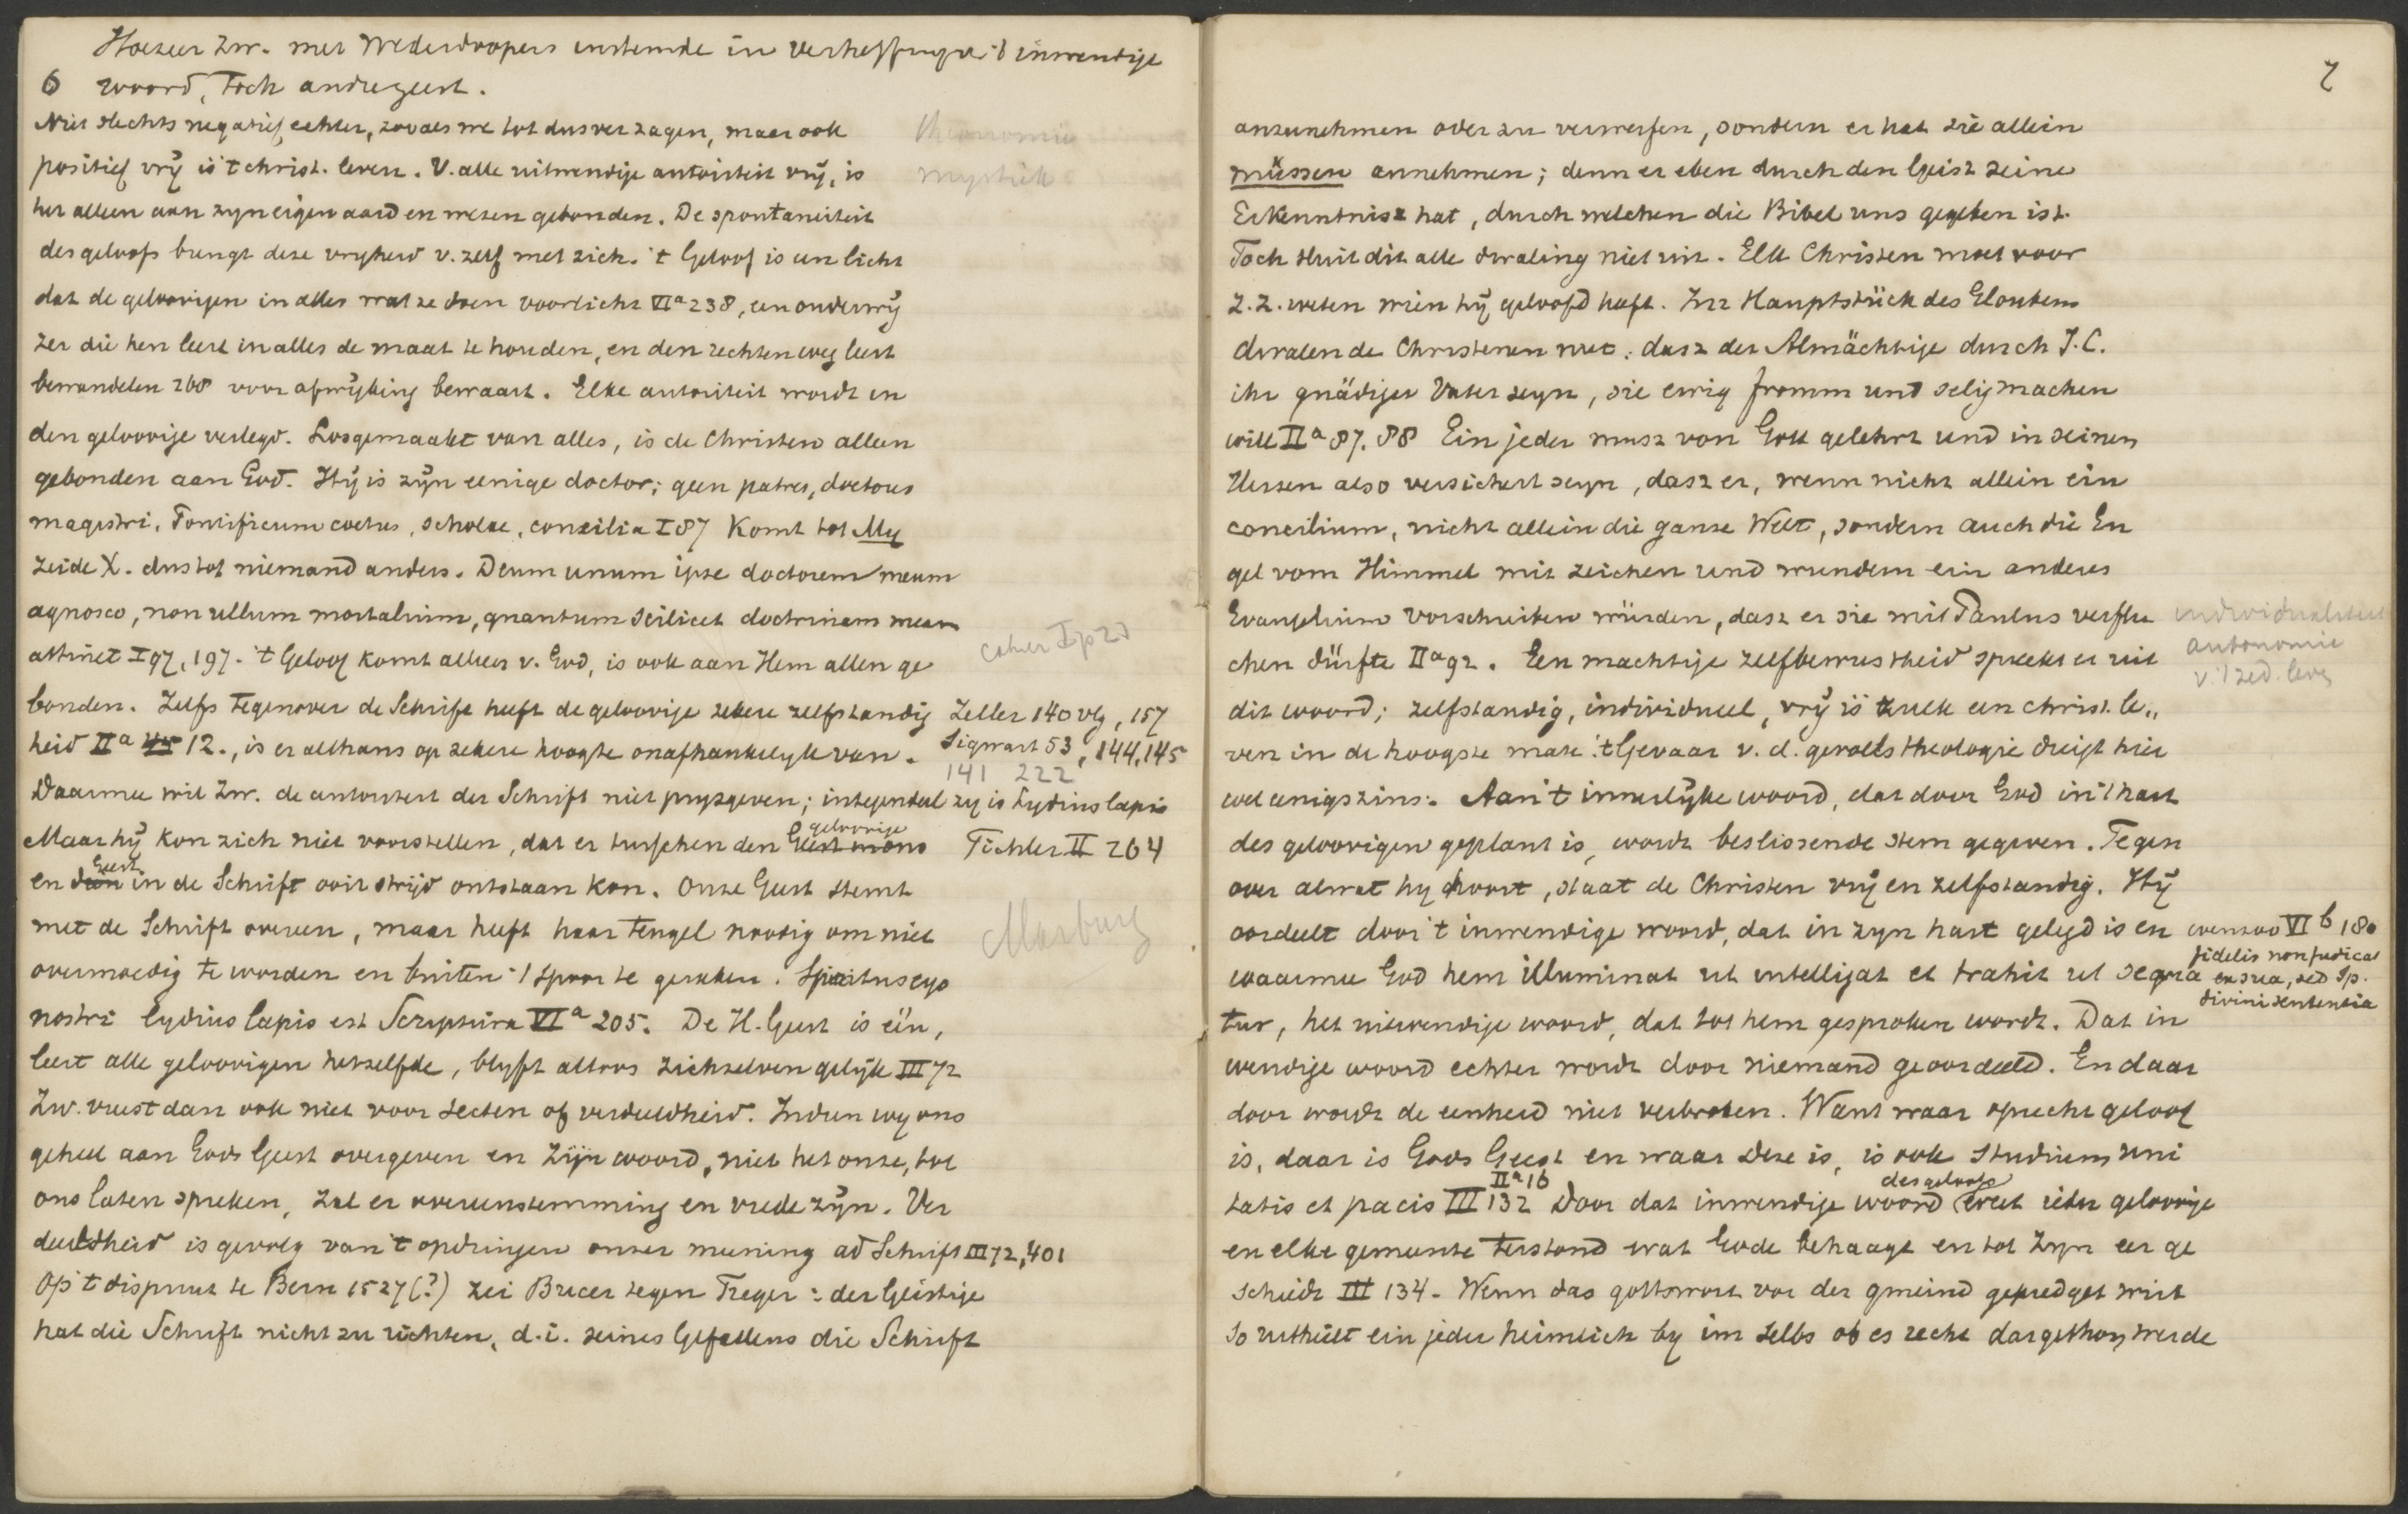 Hoezeer Zw. met Wederdoopers instemde in verheffing v. 't inwendige
6 woord, toch andre geest.
Niet slechts negatief echter, zooals we tot dusver zagen, maar ook
positief vrij is 't christ. leven. V. alle uitwendige autoriteit vrij, is
het alleen aan zyn eigen aard en wezen gebonden. De spontaneiteit
des geloofs brengt deze vryheid v. zelf met zich. 't Geloof is een licht
dat de geloovigen in alles wat ze doen voorlicht VIa 238, een onderwij
zer die hen leert in alles de maat te houden, en den rechten weg leert
bewandelen 268 voor afwijking bewaart. Elke autoriteit wordt in
den geloovige verlegd. Losgemaakt van alles, is de Christen alleen
gebonden aan God. Hij is zijn eenige doctor; geen patres, doctores
magistri, Pontificum coetus, scholae, concilia I 87 Komt tot My
zeide X. dus tot niemand anders. Deum unum ipse doctorem meum
agnosco, non ullum mortalium, quantum scilicet doctrinam meam
attinet I 97, 197. 't Geloof komt alleen v. God, is ook aan Hem alleen ge
bonden. Zelfs tegenover de Schrift heeft de geloovige zekere zelfstandig
heid IIa 12., is er althans op zekere hoogte onafhankelyk van.
Daarmee wil Zw. de autoriteit der Schrift niet prysgeven; integendeel zy is Lydius lapis
Maar hij kon zich niet voorstellen, dat er tusschen den geloovige Geest in ons
en Geest dien in de Schrift ooit strijd ontstaan kon. Onze Geest stemt
met de Schrift overeen, maar heeft haar teugel noodig om niet
overmoedig te worden en buiten 't spoor te geraken. Spiritus ergo
nostri lydius lapis est Scriptura VIa 205. De H. Geest is één,
leert alle geloovigen hetzelfde, blyft altoos zichzelven gelijk III 72
Zw. vreest dan ook niet voor secten of verdeeldheid. Indien wy ons
geheel aan Gods Geest overgeven en Zijn woord, niet het onze, tot
ons laten spreken, zal er overeenstemming en vrede zijn. Ver
deeldheid is gevolg van 't opdringen onzer meening ad Schrift III 72, 401
Op 't dispuut te Bern 1527 (?) zei Bucer tegen Treger: der Geistige
hat die Schrift nicht zu richten, d.i. seines Gefallens die Schrift
mystiek
cahier I p 23
Zeller 140 vlg, 157
Sigwart 53, 144, 145
141 222
Tichler II 264
Marburg
7
anzunehmen oder zu verwerfen, sondern er hat sie allein
müssen annehmen; denn er eben durch den Geist seine
Erkenntnisz hat, durch welchen die Bibel uns gegeben ist.
Toch sluit dit alle dwaling niet uit. Elk Christen moet voor
z.z. weten wien hij geloofd heeft. Im Hauptstück des Gloubens
dwalen de Christenen niet: dasz der Almächtige durch J.C.
ihr gnädiger Vater seyn, sie ewig fromm und selig machen
will IIa 87. 88 Ein jeder musz von Gott gelehrt und in seinem
Herzen also versichert seyn, dasz er, wenn nicht allein ein
concilium, nicht allein die ganze Welt, sondern auch die En
gel vom Himmel mit zeichen und wundern ein anderes
Evangelium vorschreiben würden, dasz er sie mit Paulus verflu
chen dürfte IIa 92. Een machtige zelfbewustheid spreekt er uit
dit woord; zelfstandig, individueel, vrij is zulk een christ. le„
ven in de hoogste mate. 't Gevaar v. d. gevoelstheologie dreigt hier
wel eenigszins. Aan 't innerlijke woord, dat door God in 't hart
des geloovigen geplant is, wordt beslissende stem gegeven. Tegen
over alwat hy hoort, staat de Christen vrij en zelfstandig. Hij
oordeelt door 't inwendige woord, dat in zyn hart gelegd is en
waarmee God hem illuminat ut intelligat et trahit ut sequa
tur, het uitwendige woord, dat tot hem gesproken wordt. Dat in
wendige woord echter wordt door niemand geoordeeld. En daar
door wordt de eenheid niet verbroken. Want waar oprecht geloof
is, daar is Gods Geest en waar deze is, is ook studium uni
tatis et pacis III 132 IIa 16 Door dat inwendige woord des geloofs weet ieder geloovige
en elke gemeente terstond wat Gode behaagt en tot Zyn eer ge
schiedt III 134. Wenn das gottswort vor der gmeind gepredget wirt
so urtheilt ein jeder heimlich by im selbs ob es recht dargethon werde
individualiteit
autonomie
v. 't zed. leven
evenzoo VI b 180
fidelis non judicat
ex sua, sed Sp.
divini sententia